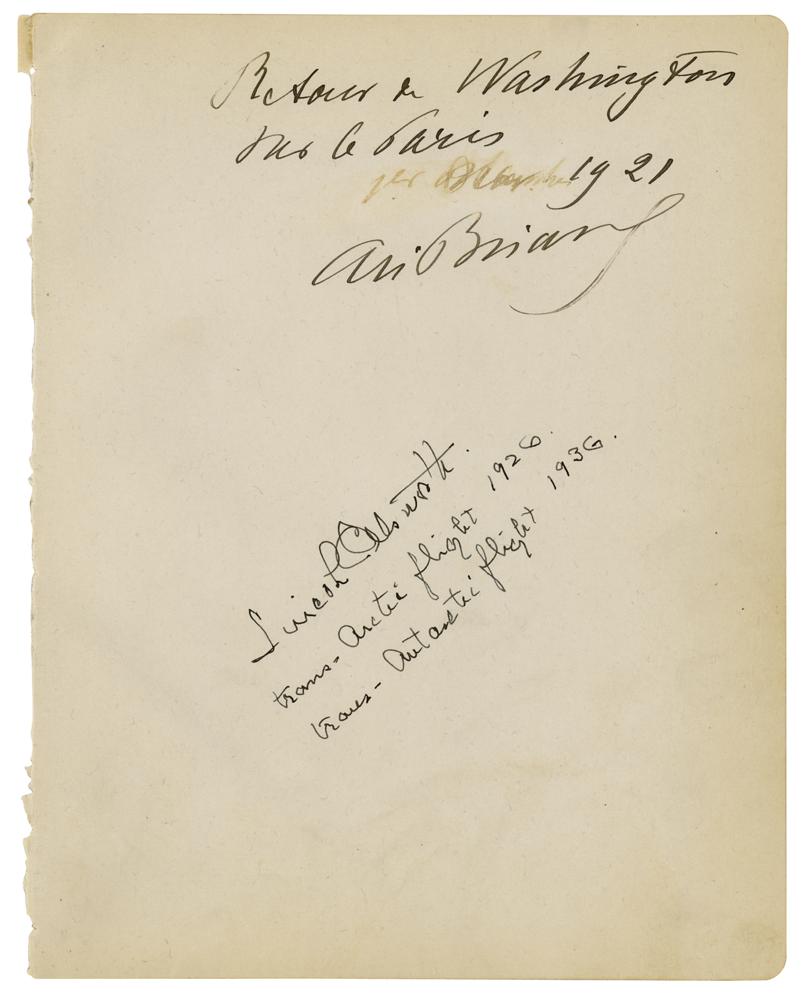 Retour de Washington
sur le Paris
1er Décembre 1921
Ari Briand
Lincoln Ellsworth.
trans-Arctic flight 1926.
trans-Antarctic flight 1936.